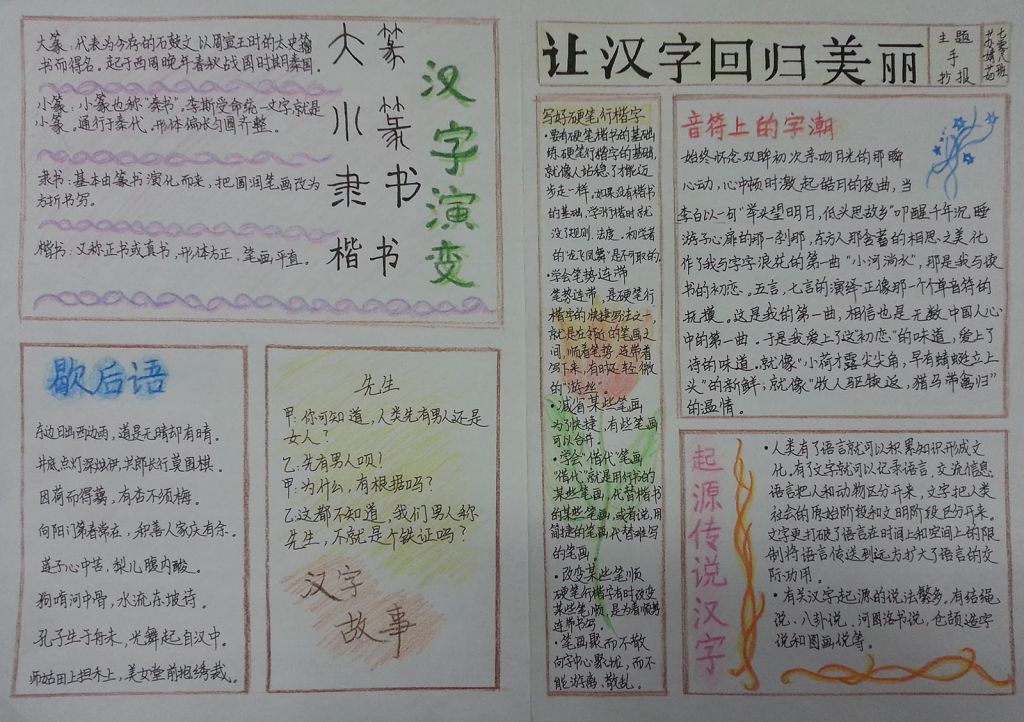 大篆：代表为今存的石鼓文以周宣王时的太史籀
书而得名。起于西周晚年春秋战国时期秦国。
小篆：小篆也称“秦书”。李斯受命统一文字就是
小篆。通行于秦代。形体偏长匀圆齐整。
隶书：基本由篆书演化而来，把圆润笔画改为
方折书写。
楷书：又称正书或真书，形体方正，笔画平直。
大篆
小篆
隶书
楷书
汉字演变
歇后语
东边日出西边雨，道是无晴却有晴。
井底点灯深烛伊，共郎长行莫围棋。
因荷而得藕，有杏不须梅。
向阳门第春常在，积善人家庆有余。
莲子心中苦，梨儿腹内酸。
狗啃河中骨，水流东坡诗。
孔子生于舟末，光舞起自汉中。
师姑田上担禾上，美女堂前抱绣裁。
先生
甲：你可知道，人类先有男人还是
女人？
乙：先有男人呗！
甲：为什么，有根据吗？
乙：这都不知道，我们男人称
先生，不就是个铁证吗？
汉字
故事
让汉字回归美丽
主题
手
抄报
七零八班
苏婧茹
写好硬笔行楷字
·要有硬笔楷书的基础
练硬笔行楷字的基础，
就像人站稳了才能迈
步走一样，如果没有楷书
的基础，学行楷时就
没了规则、法度。初学者
的“龙飞凤舞”是不可取的。
·学会笔势连带
笔势连带，是硬笔行
楷字的快捷写法之一，
就是在邻近的笔画之
间，顺着笔势连带着
写下来，有时处轻微
的“游丝”。
·减省某些笔画
为了快捷，有些笔画
可以合并。
·学会“借代”笔画
“借代”就是用行书的
某些笔画，代替楷书
的某些笔画，或者说，用
简捷的笔画代替难写
的笔画
·改变某些笔顺
硬笔行楷字有时改变
某些笔顺，是为着顺势
连带书写。
·笔画聚而不散
向字中心聚拢，而不
能游离、散乱。
音符上的字潮
始终怀念双眸初次亲吻月光的那瞬
心动，心中顿时激起皓月的夜曲，当
李白以一句“举头望明月，低头思故乡”叩醒千年沉睡
游子心扉的那一刹那，东方人那含蓄的相思之美化
作了我与字字浪花的第一曲“小河淌水”，那是我与读
书的初恋。五言，七言的演绎正像那一个个单音符的
抚摸。这是我的第一曲，相信也是无数中国人心
中的第一曲。于是我爱上了这“初恋”的味道，爱上了
诗的味道。就像“小荷才露尖尖角，早有蜻蜓立上
头”的新鲜；就像“牧人驱犊返，猎马带禽归”
的温情。
起源传说汉字
·人类有了语言就可以积累知识形成文
化，有了文字就可以记录语言，交流信息，
语言把人和动物区分开来，文字把人类
社会的原始阶段和文明阶段区分开来。
文字更打破了语言在时间上和空间上的限
制将语言传送到远方扩大了语言的交
际功用。
·有关汉字起源的说法繁多。有结绳
说、八卦说、河图洛书说，仓颉造字
说和图画说等。